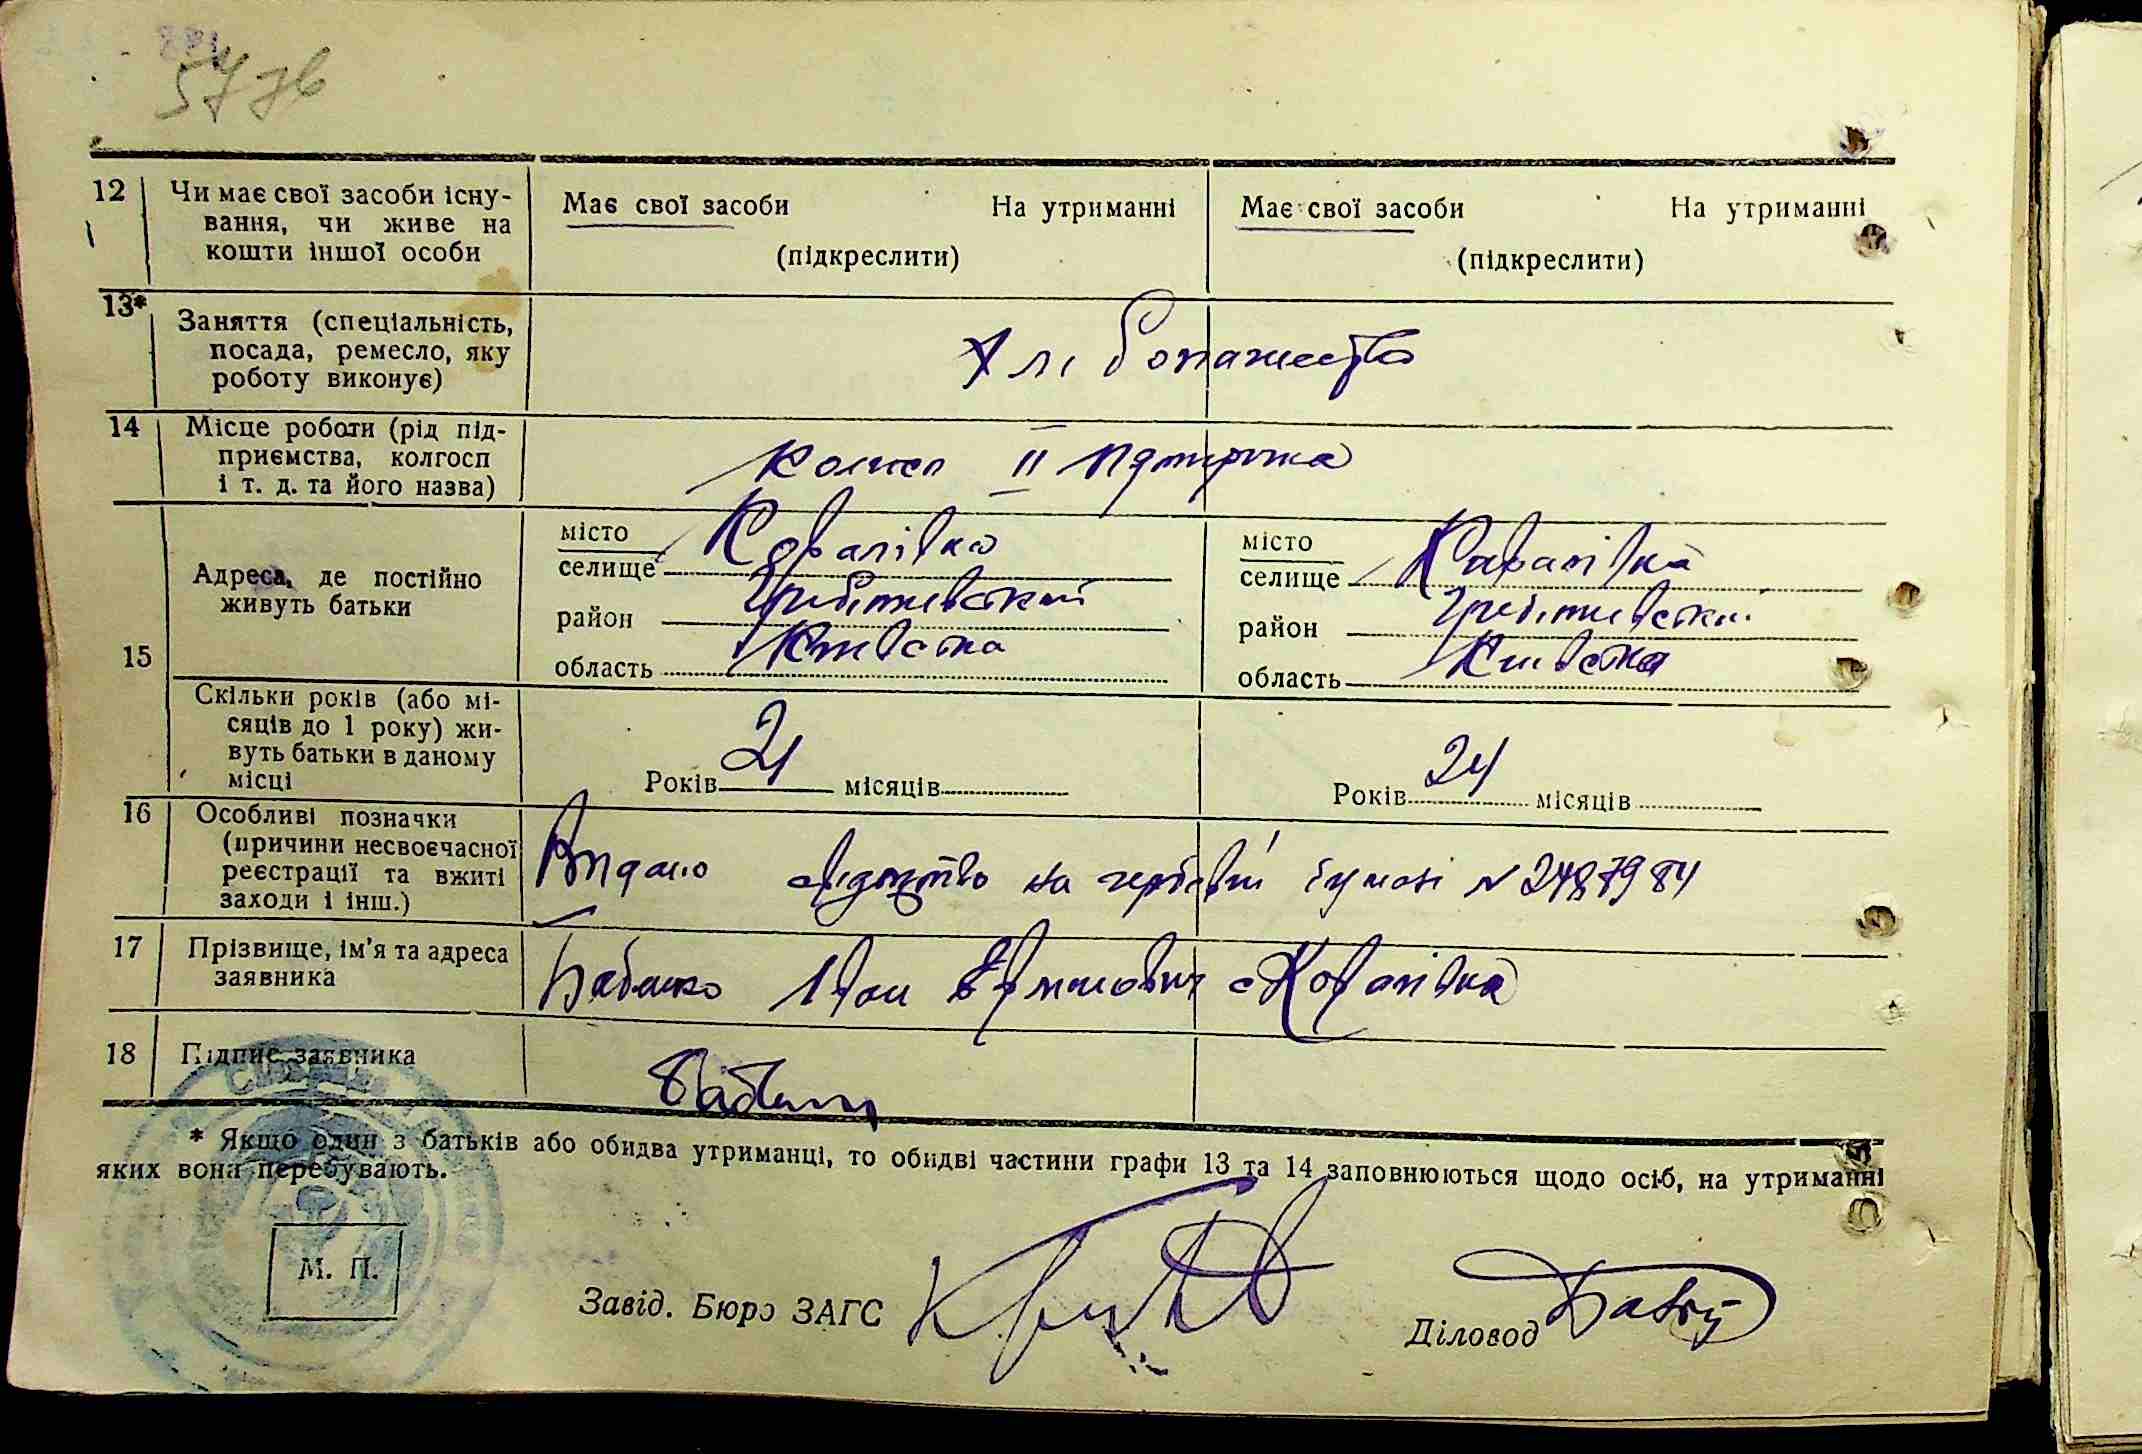 577в
12 Чи має свої засоби існу-
вання, чи живе на
кошти іншої особи
Має свої засоби На утриманні
(підкреслити)
Має свої засоби На утриманні
(підкреслити)
13* Заняття (спеціальність,
посада, ремесло, яку
роботу виконує)
Хліборобство
14 Місце роботи (рід під-
приємства, колгосп
і т. д. та його назва)
Колгосп II Пятирічка
15 Адреса, де постійно
живуть батьки
місто
селище Ковалівка
район Гребінківський
область Київська
місто
селище Ковалівка
район Гребінківський
область Київська
Скільки років (або мі-
сяців до 1 року) жи-
вуть батьки в даному
місці
Років 21 місяців
Років 24 місяців
16 Особливі позначки
(причини несвоєчасної
реєстрації та вжиті
заходи і інш.)
Видано свідоцтво на гербовій бумазі № 2487984
17 Прізвище, ім'я та адреса
заявника
Бабенко Іван с Ковалівка
18 Підпис заявника
* Якщо один з батьків або обидва утриманці, то обидві частини графи 13 та 14 заповнюються щодо осіб, на утриманні
яких вони перебувають.
М. П.
Завід. Бюро ЗАГС
Діловод